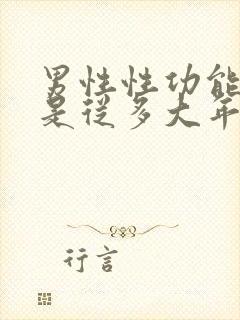 男性性功能
是从多大年
行言